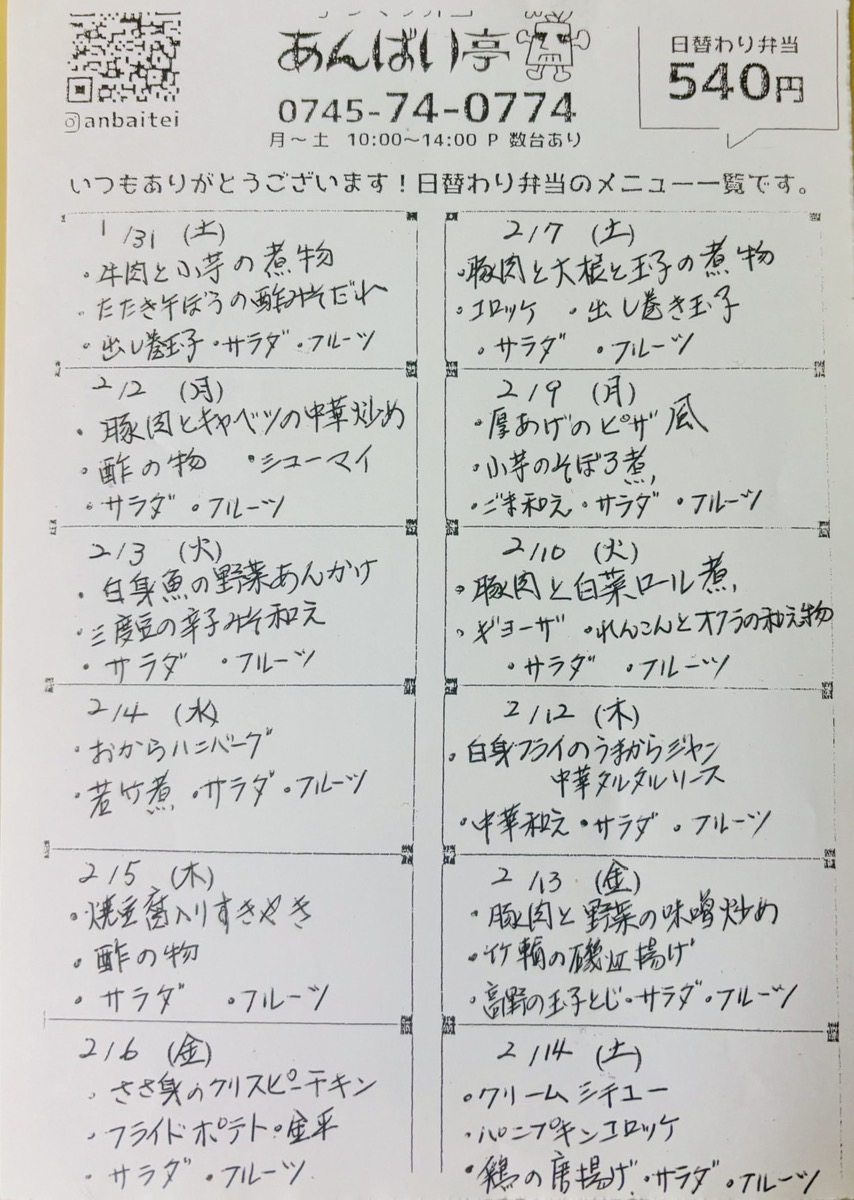 あんばい亭
0745-74-0774
月～土 10:00～14:00 P 数台あり
anbaitei
日替わり弁当
540円
いつもありがとうございます！日替わり弁当のメニュー一覧です。
1/31 (土)
・牛肉と小芋の煮物
・たたき午ぼうの酢みそだれ
・出し巻玉子・サラダ・フルーツ
2/2 (月)
・豚肉とキャベツの中華炒め
・酢の物 ・シューマイ
・サラダ ・フルーツ
2/3 (火)
・白身魚の野菜あんかけ
・三度豆の辛子みそ和え
・サラダ ・フルーツ
2/4 (水)
・おからハンバーグ
・若竹煮 ・サラダ・フルーツ
2/5 (木)
・焼豆腐入りすきやき
・酢の物
・サラダ ・フルーツ
2/6 (金)
・ささ身のクリスピーチキン
・フライドポテト・金平
・サラダ ・フルーツ
2/7 (土)
・豚肉と大根と玉子の煮物
・コロッケ ・出し巻き玉子
・サラダ ・フルーツ
2/9 (月)
・厚あげのピザ風
・小芋のそぼろ煮
・ごま和え・サラダ ・フルーツ
2/10 (火)
・豚肉と白菜ロール煮
・ギョーザ ・れんこんとオクラの和え物
・サラダ ・フルーツ
2/12 (木)
・白身フライのうまからジャン
中華タルタルソース
・中華和え・サラダ・フルーツ
2/13 (金)
・豚肉と野菜の味噌炒め
・竹輪の磯辺揚げ
・高野の玉子とじ・サラダ・フルーツ
2/14 (土)
・クリームシチュー
・パンプキンコロッケ
・鶏の唐揚げ・サラダ・フルーツ